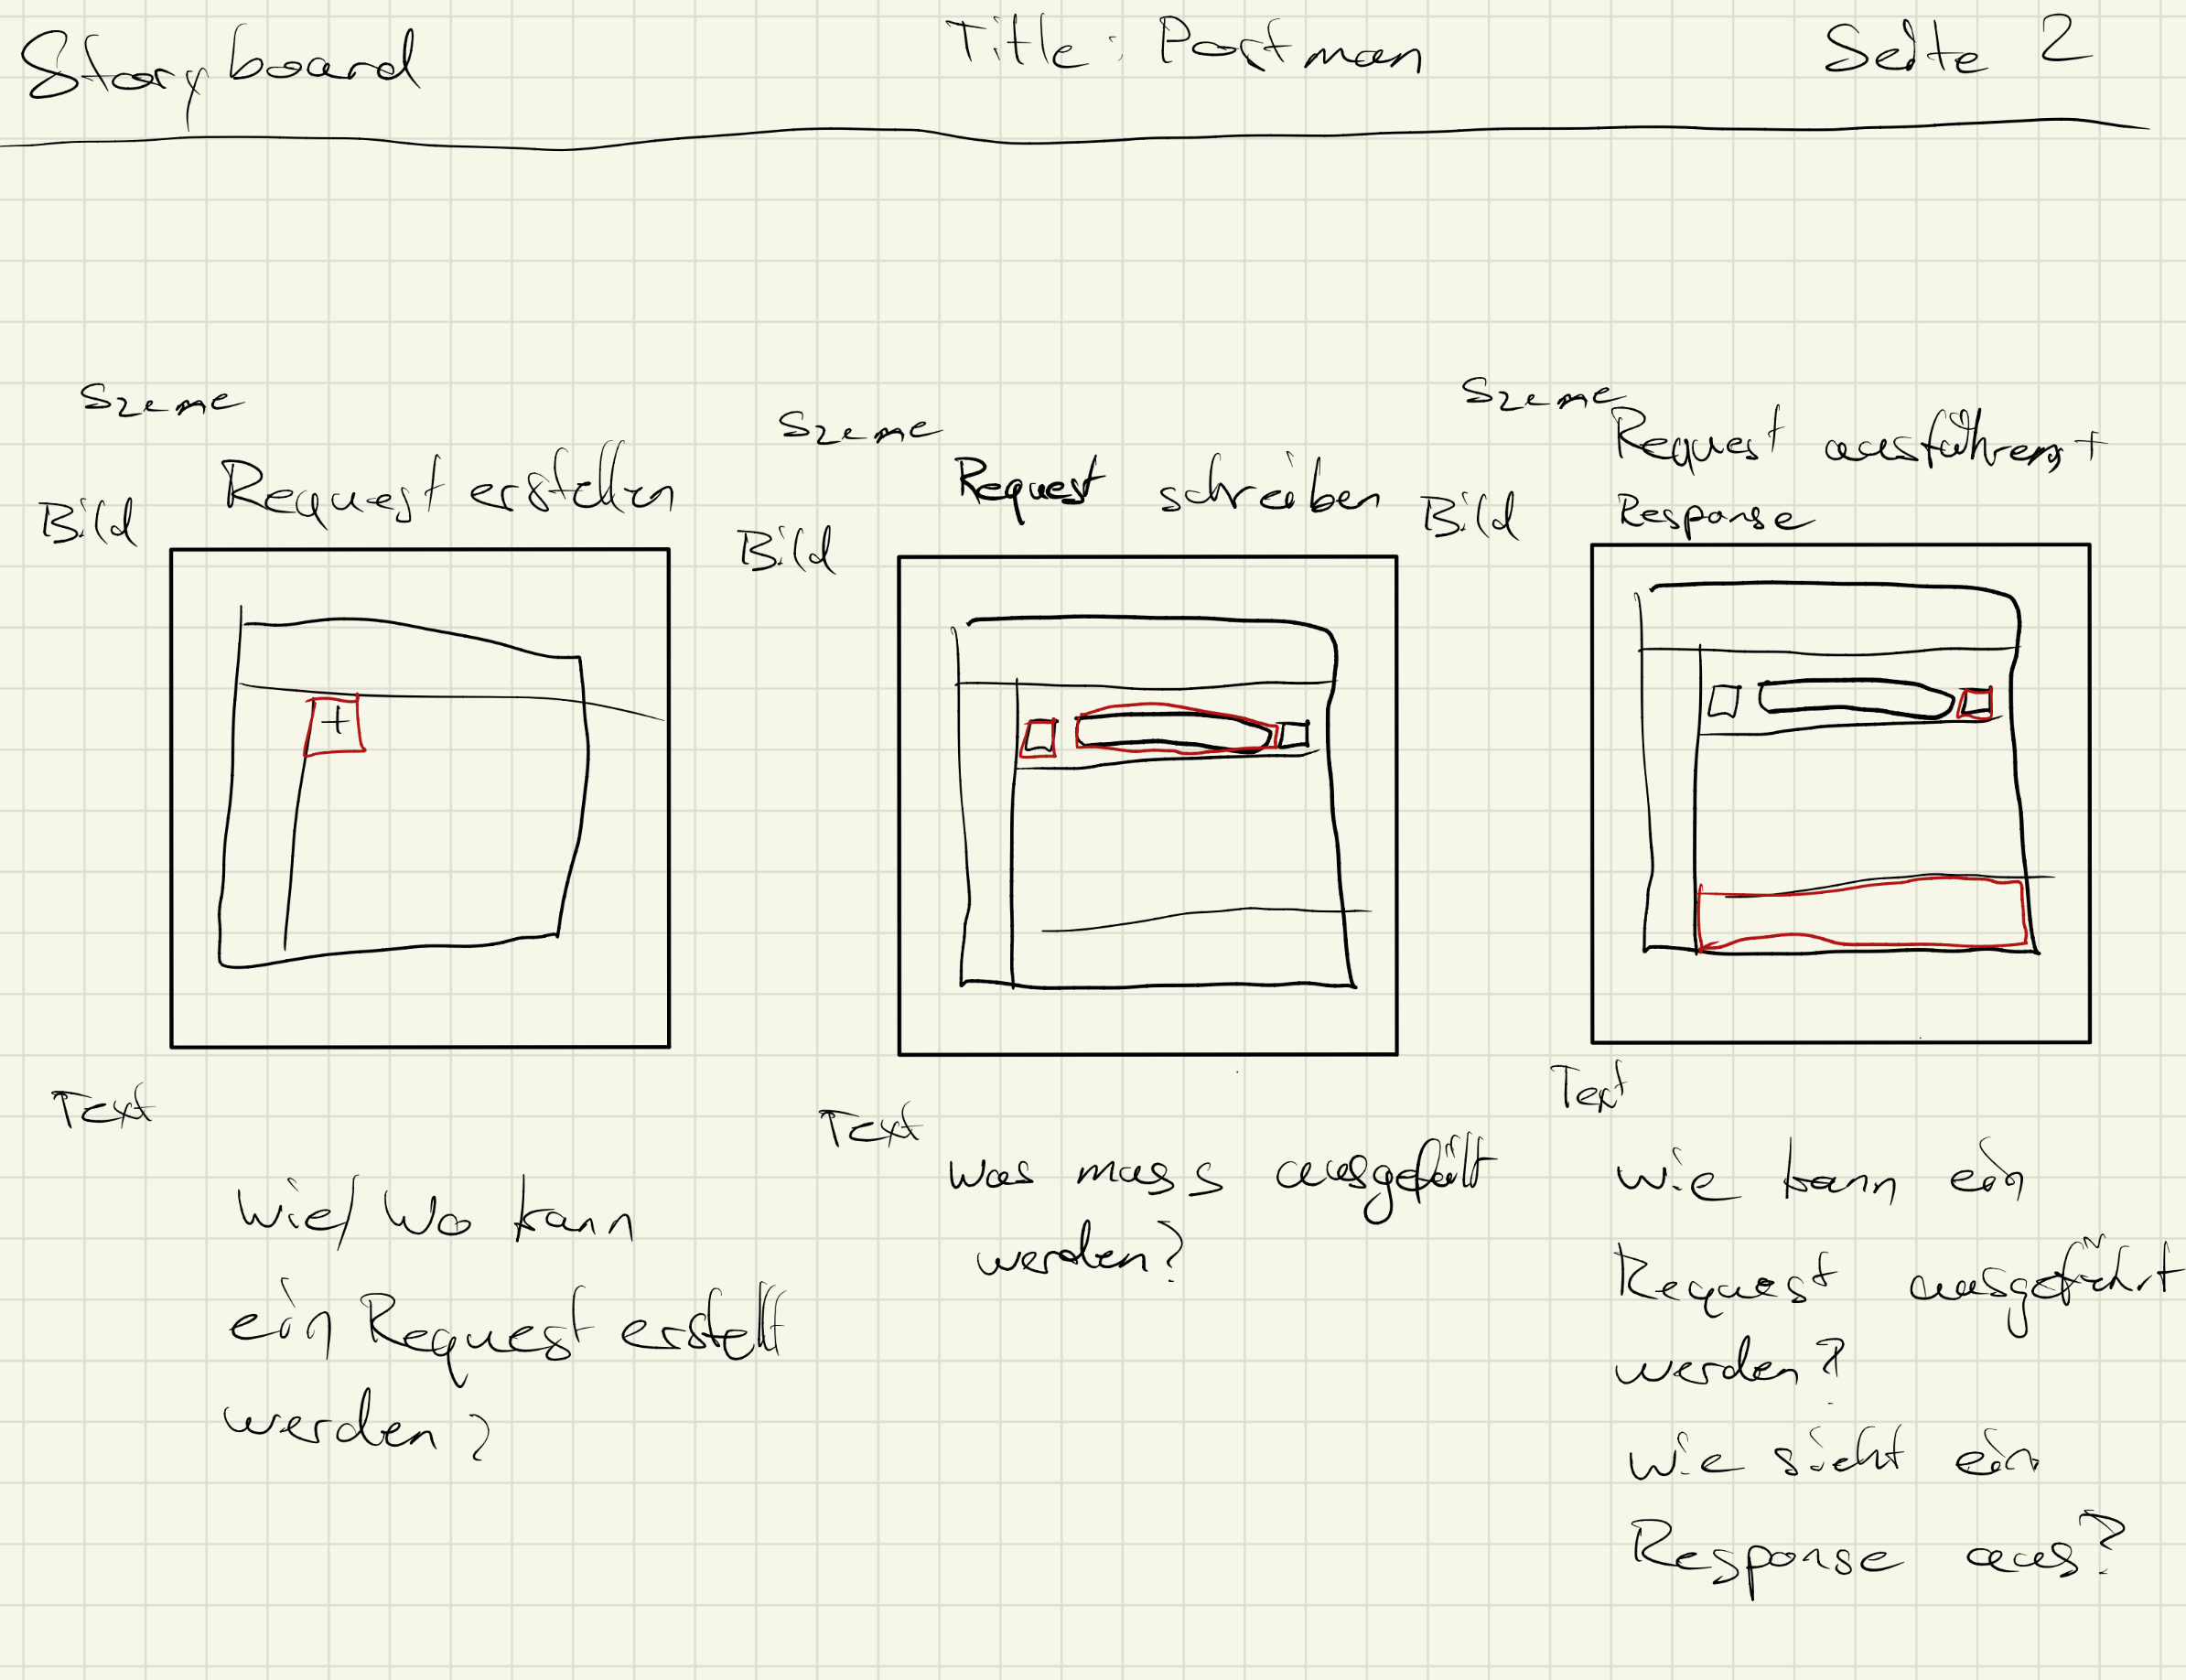 Storyboard
Title: Postman
Seite 2
Szene
Request erstellen
Bild
+
Text
Wie/Wo kann
ein Request erstellt
werden?
Szene
Request schreiben
Bild
Text
Was muss ausgefüllt
werden?
Szene
Request ausführen +
Response
Bild
Text
Wie kann ein
Request ausgeführt
werden?
Wie sieht ein
Response aus?